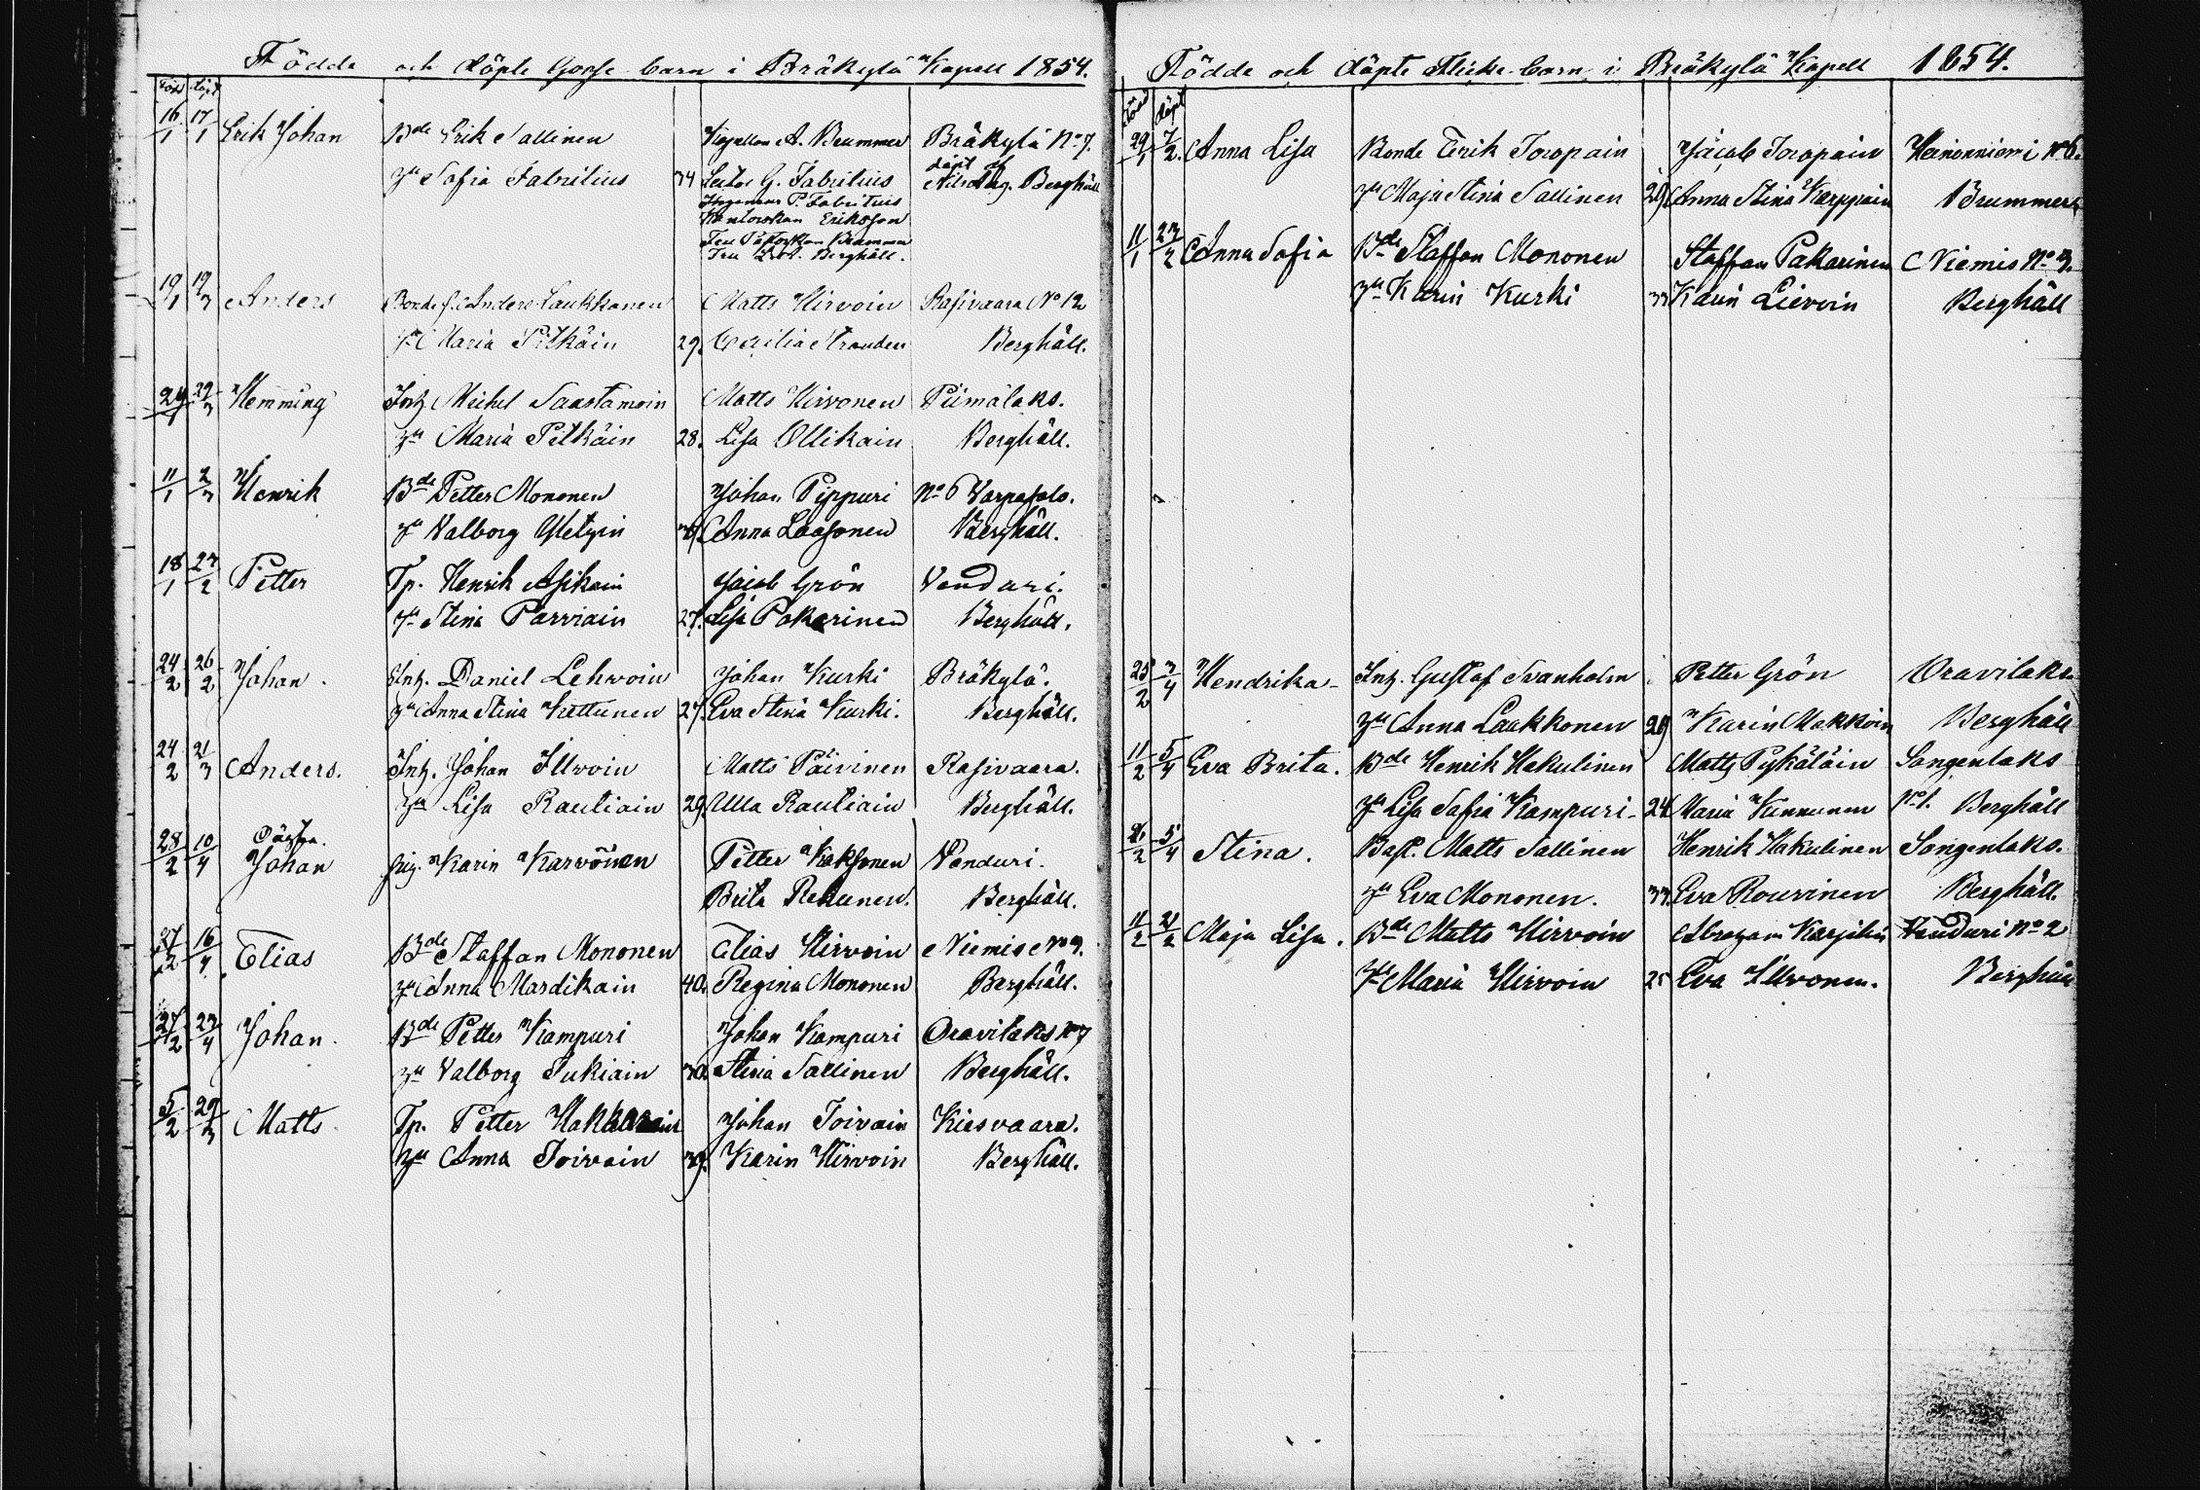 Födde och döpte Gosse barn i Bräkylä Kapell 1854.
Född döpt
16/1 17/1 Erik Johan Bde Erik Sallinen Kapellan A. Brummer Bräkylä No 7.
hu Sofia Fabritius 34 Lector G. Fabritius döpt af
P. Fabritius Berghäll
Erikson
Fru Brummer
Fru Berghäll.
19/1 19/3 Anders Bonde s. Anders Laukkanen Matts Hirvoin Rasivaara No 12
hu Maria Pitkäin 29. Cecilia Stranden Berghäll.
24/1 29/3 Hemming Inh. Michel Saastamoin Matts Hirvonen Piimälaks.
hu Maria Pitkäin 28. Lisa Ollikain Berghäll.
11/1 2/3 Henrik Bde Petter Mononen Johan Pippuri No 6 Varpasalo.
hu Valborg Anna Laasonen Berghäll.
18/1 23/2 Petter Tp. Henrik Asikain Jacob Grön Vänduri.
hu Stina Parviain 27. Lisa Pakarinen Berghäll.
24/2 26/2 Johan. Inh. Daniel Lehvoin Johan Kurki Bräkylä.
hu Anna Stina Kettunen 27. Eva Stina Kurki. Berghäll.
24/2 21/3 Anders. Inh. Johan Illvoin Matts Päivinen Rasivaara.
hu Lisa Rautiain 29. Ulla Rautiain Berghäll.
28/2 10/4 Oäkta. Johan pig. Karin Karvonen Petter Kaksonen Vänduri.
Brita Rekunen. Berghäll.
27/2 16/4 Elias Bde Staffan Mononen Elias Hirvoin Niemis No 9.
hu Anna Mardikain 40. Regina Mononen Berghäll.
27/2 23/4 Johan. Bde Petter Kampuri Johan Kampuri Oravilaks No 7
hu Valborg Sukiain 30. Stina Sallinen Berghäll.
5/2 29/3 Matts. Tp. Petter Hakkarain Johan Toivain Kiesvaara.
hu Anna Toivain 39. Karin Hirvoin Berghäll.
Födde och döpte Flicke barn i Bräkylä Kapell 1854.
född döpt
29/1 7/2. Anna Lisa Bonde Erik Toropain Jacob Toropain Heinoniemi No 6.
hu Maja Stina Sallinen 29. Anna Stina Karppain Brummer
11/1 23/2 Anna Sofia Bde Staffan Mononen Staffan Pakarinen Niemis No 3.
hu Karin Kurki 33 Karin Lievoin Berghäll
25/2 3/4 Hendrika Inh. Gustaf Svanholm Petter Grön Oravilaks
hu Anna Laukkonen 29 Karin Makkoin Berghäll
11/2 5/4 Eva Brita. Bde Henrik Hakulinen Matts Pykäläin Sangenlaks
hu Lisa Sofia Kampuri 24 Maria Kinnunen No 1. Berghäll
5/4 Stina. Matts Sallinen Henrik Hakulinen Sangenlaks.
hu Eva Mononen. 33. Eva Rouvinen Berghäll.
11/2 21/2 Maja Lisa. Bde Matts Hirvoin Abraham Karjalain Vänduri No 2
hu Maria Hirvoin 25 Eva Illvonen. Berghäll